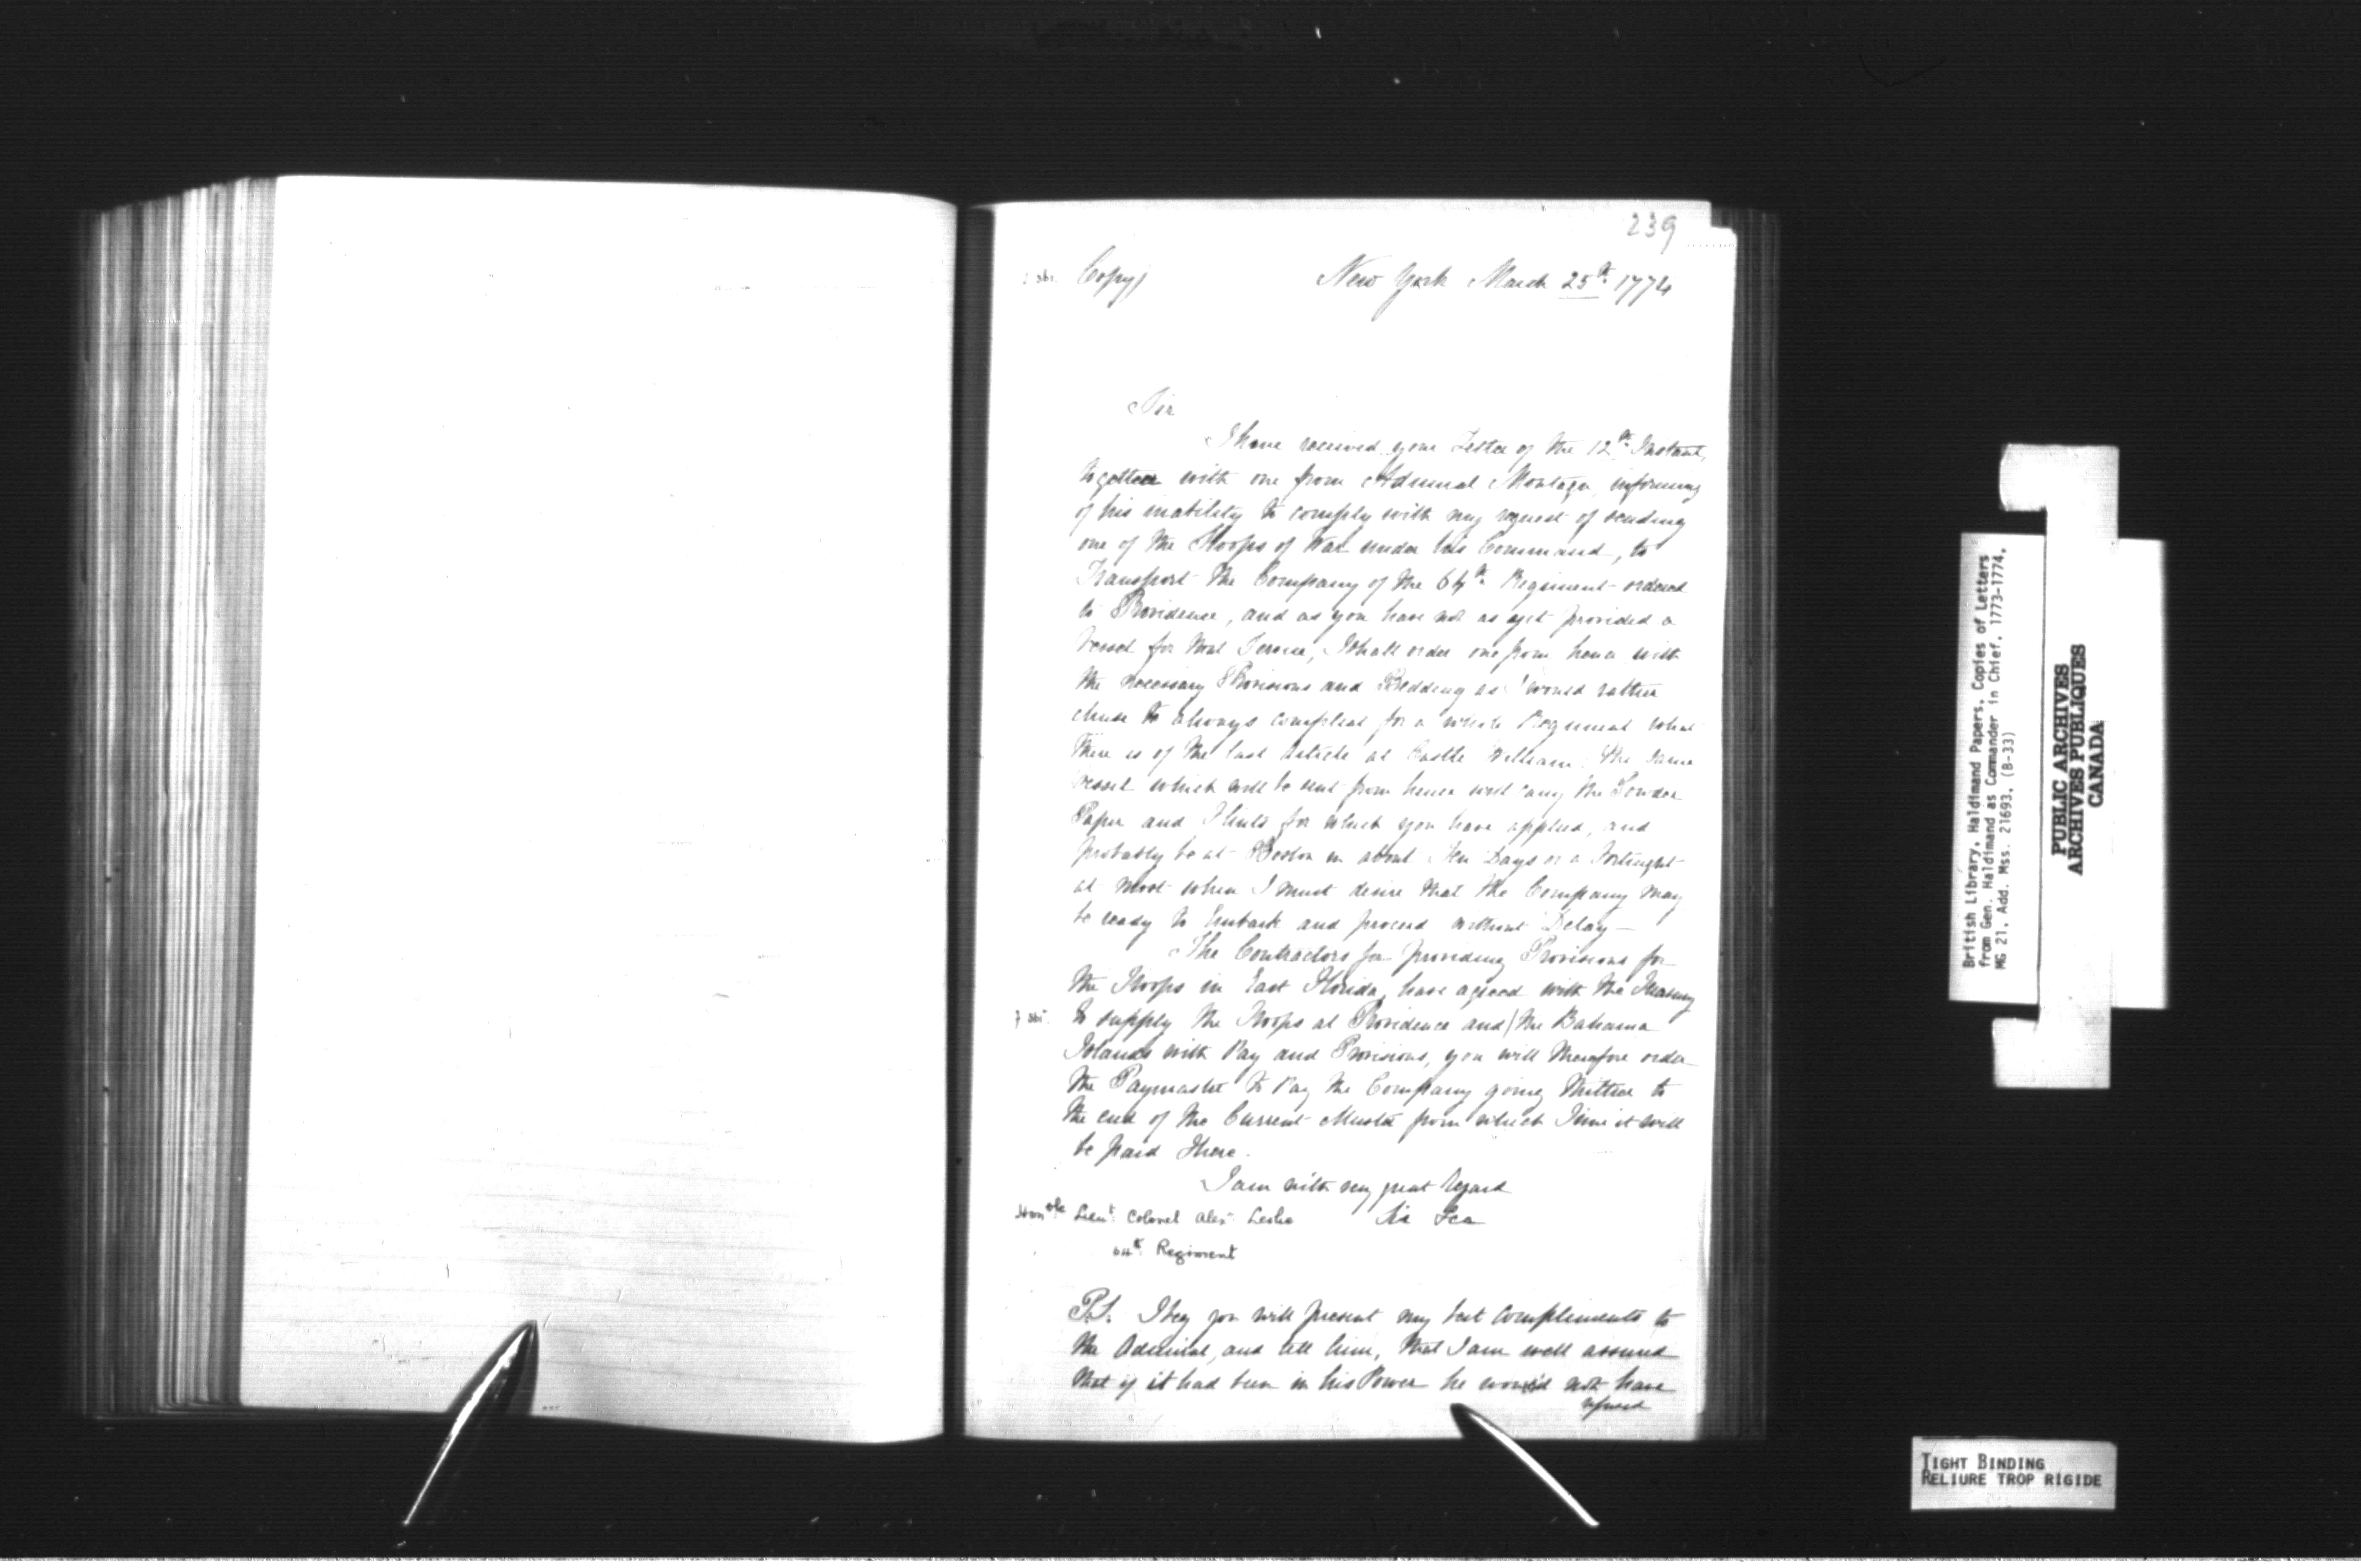 239
Copy)
New York March 25th 1774
Sir
I have received your Letter of the 12th Instant,
together with one from Admiral Montagu, informing
of his inability to comply with my request of sending
one of the Sloops of War under his Command, to
Transport the Company of the 64th Regiment ordered
to Providence, and as you have not as yet provided a
Vessel for that Service, I shall order one from hence with
the necessary Provisions and Bedding as I would rather
chuse to always compleat for a whole Regiment what
there is of the last Article at Castle William. The same
Vessel which will be sent from hence will carry the Powder
Paper and Flints for which you have applied, and
probably be at Boston in about Ten Days or a Fortnight
at most when I must desire that the Company may
be ready to Embark and proceed without Delay —
The Contractors for providing Provisions for
the Troops in East Florida, have agreed with the Treasury
to supply the Troops at Providence and | the Bahama
Islands with Pay and Provisions, you will therefore order
the Paymaster to Pay the Company going thither to
the end of the Current Muster from which Time it will
be paid there.
I am with very great Regard
Honble Lieut. Colonel Alexr. Leslie Sir &ca
64th Regiment
P.S. I beg you will present my best compliments to
the Admiral, and tell him, that I am well assured
that if it had been in his Power he would not have
refused
British Library, Haldimand Papers, Copies of Letters
from Gen. Haldimand as Commander in Chief. 1773-1774,
MG 21, Add. Mss. 21693, (B-33)
PUBLIC ARCHIVES
ARCHIVES PUBLIQUES
CANADA
TIGHT BINDING
RELIURE TROP RIGIDE